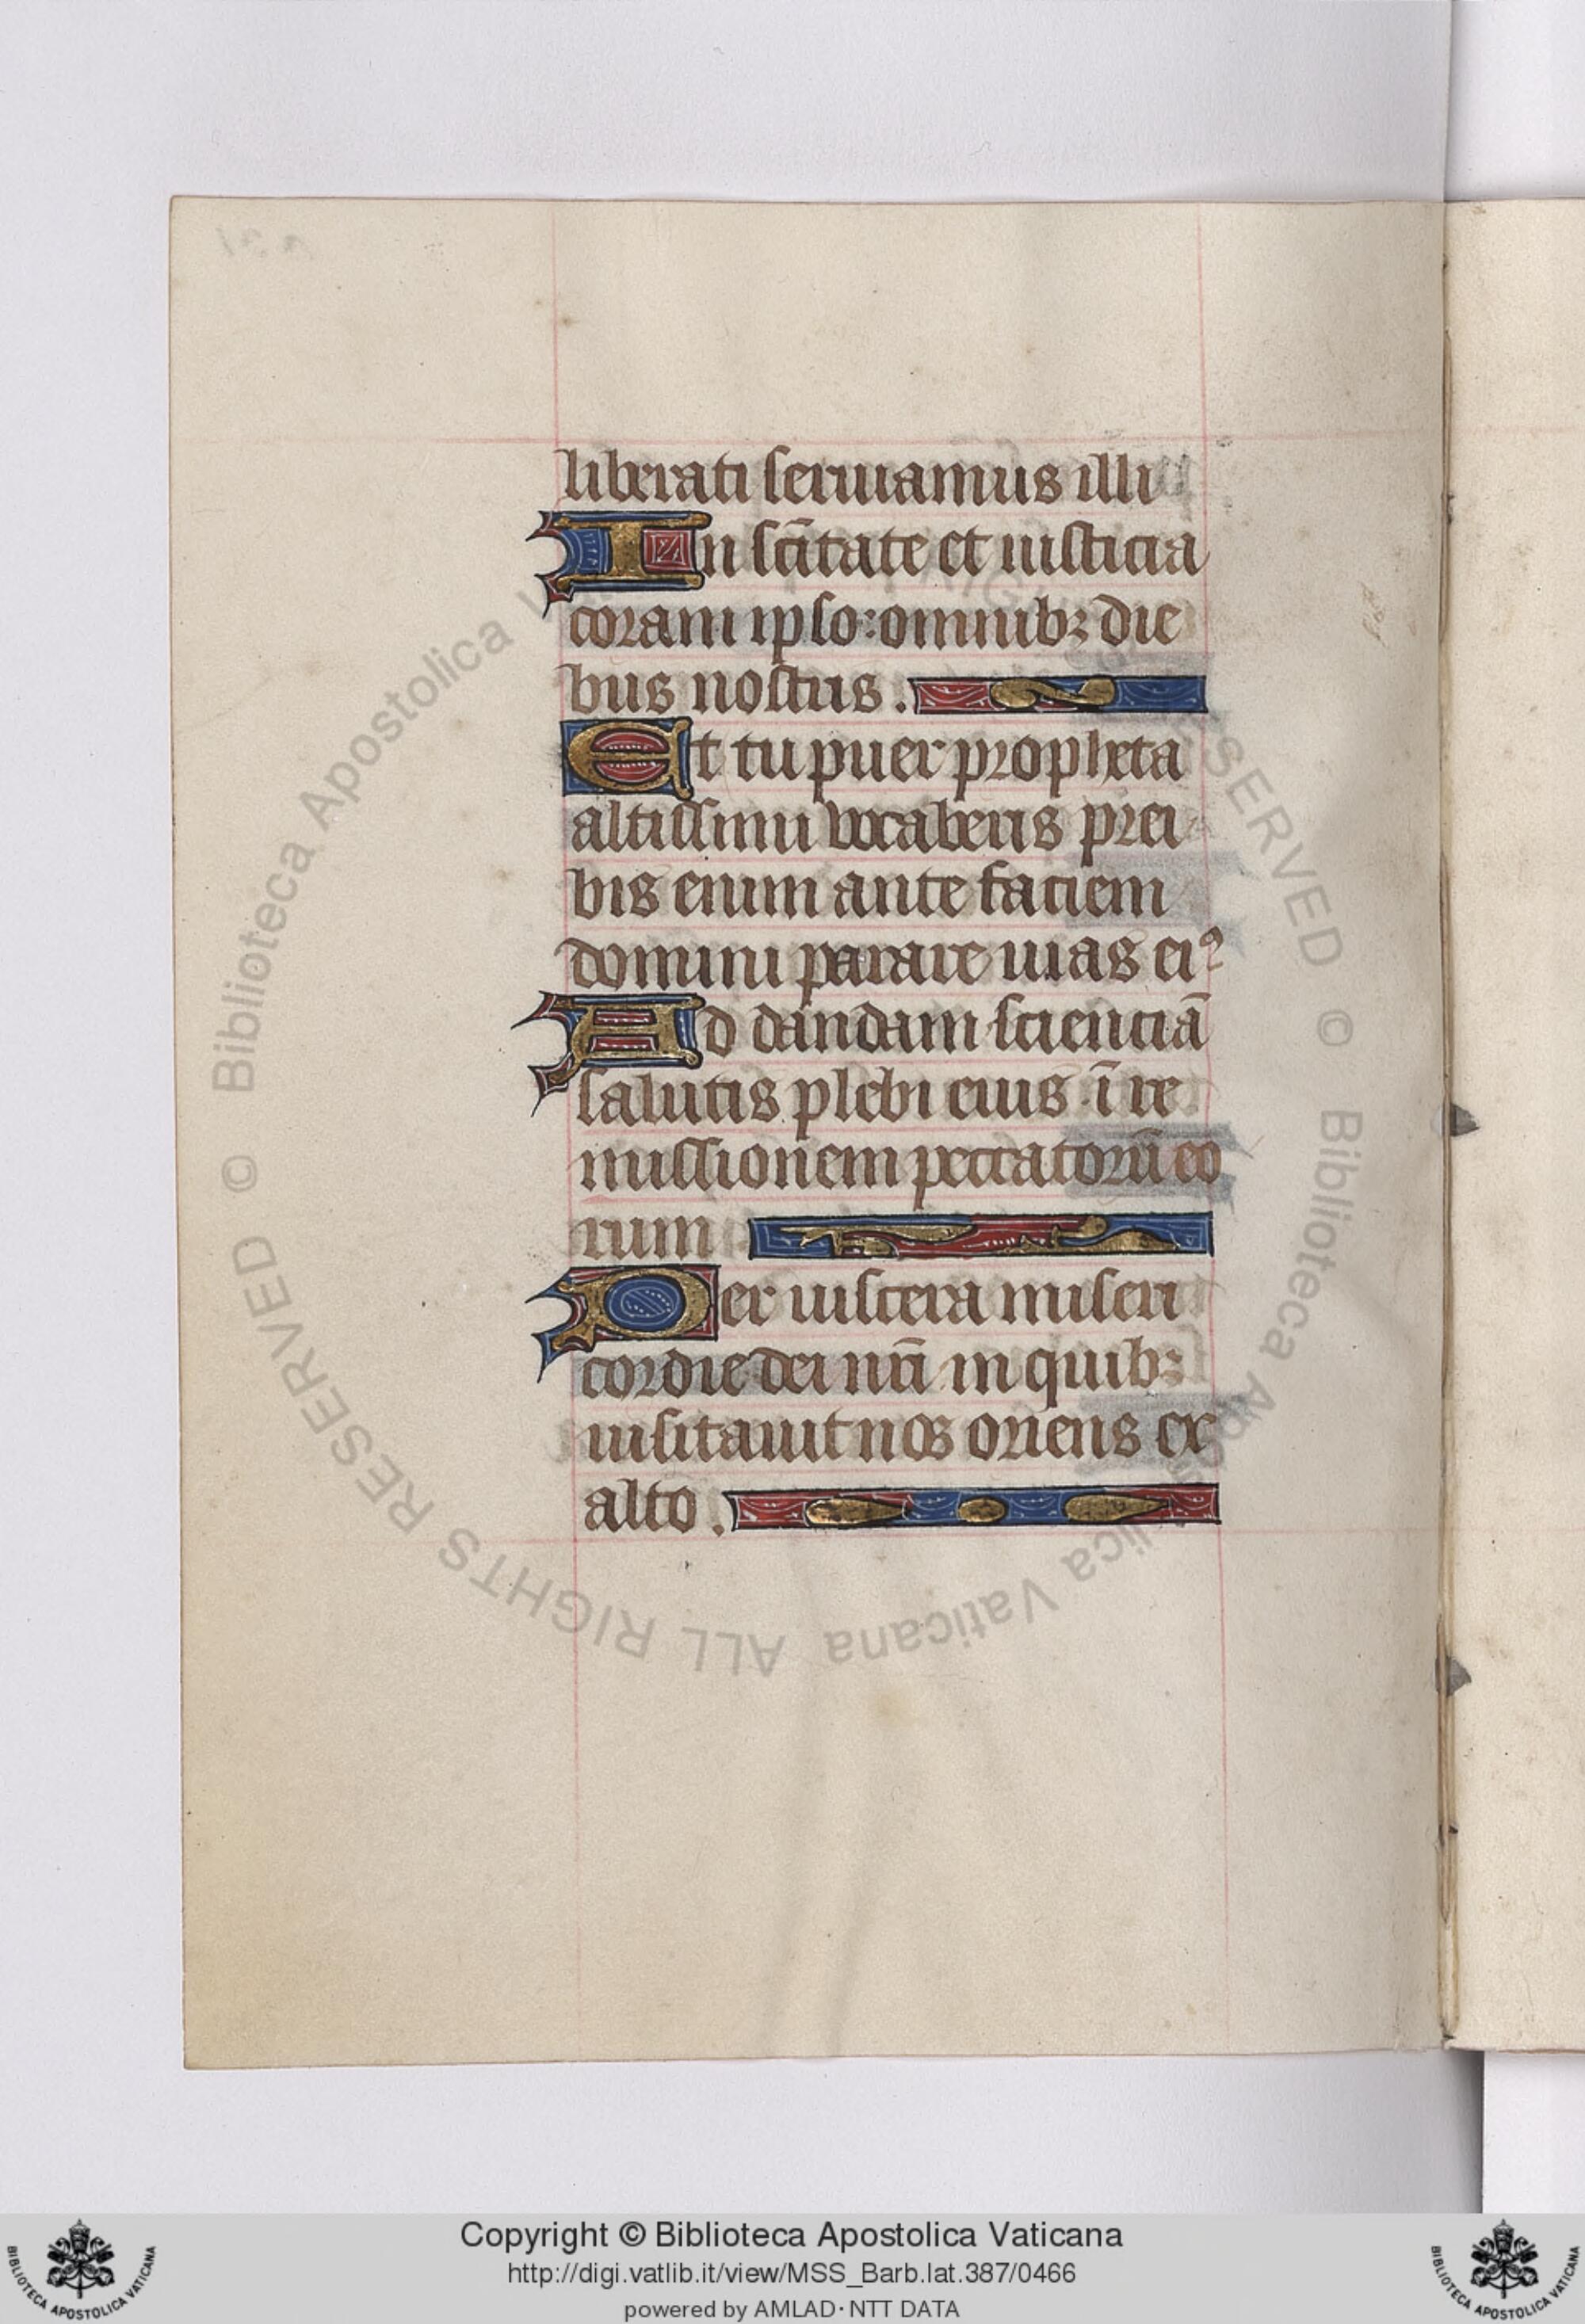 liberati seruiamus illi
In sc̄itate et iusticia
coram ipso: omnibꝫ die
bus nostris.
Et tu puer propheta
altissimi vocaberis prei
bis enim ante faciem
domini parare uias eiꝰ
Ad dandam scienciā
salutis plebi eius ī re
missionem peccatorū eo
rum
Per uiscera miseri
cordie dei nr̄i in quibꝫ
uisitauit nos oriens ex
alto.
© Biblioteca Apostolica Vaticana ALL RIGHTS RESERVED © Biblioteca Apostolica Vaticana ALL RIGHTS RESERVED
Copyright © Biblioteca Apostolica Vaticana
http://digi.vatlib.it/view/MSS_Barb.lat.387/0466
powered by AMLAD·NTT DATA
BIBLIOTECA APOSTOLICA VATICANA
BIBLIOTECA APOSTOLICA VATICANA